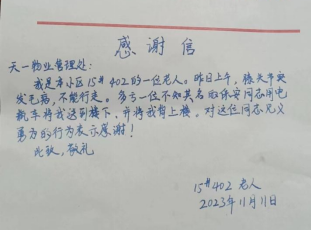 感谢信
天一物业管理处:
我是本小区15#402的一位老人。昨日上午,膝关节突
发毛病,不能行走。多亏一位不知其名的保安同志用电
瓶车将我送到楼下,并将我背上楼。对这位同志见义
勇为的行为表示感谢!
此致,敬礼
15#402 老人
2023年11月11日